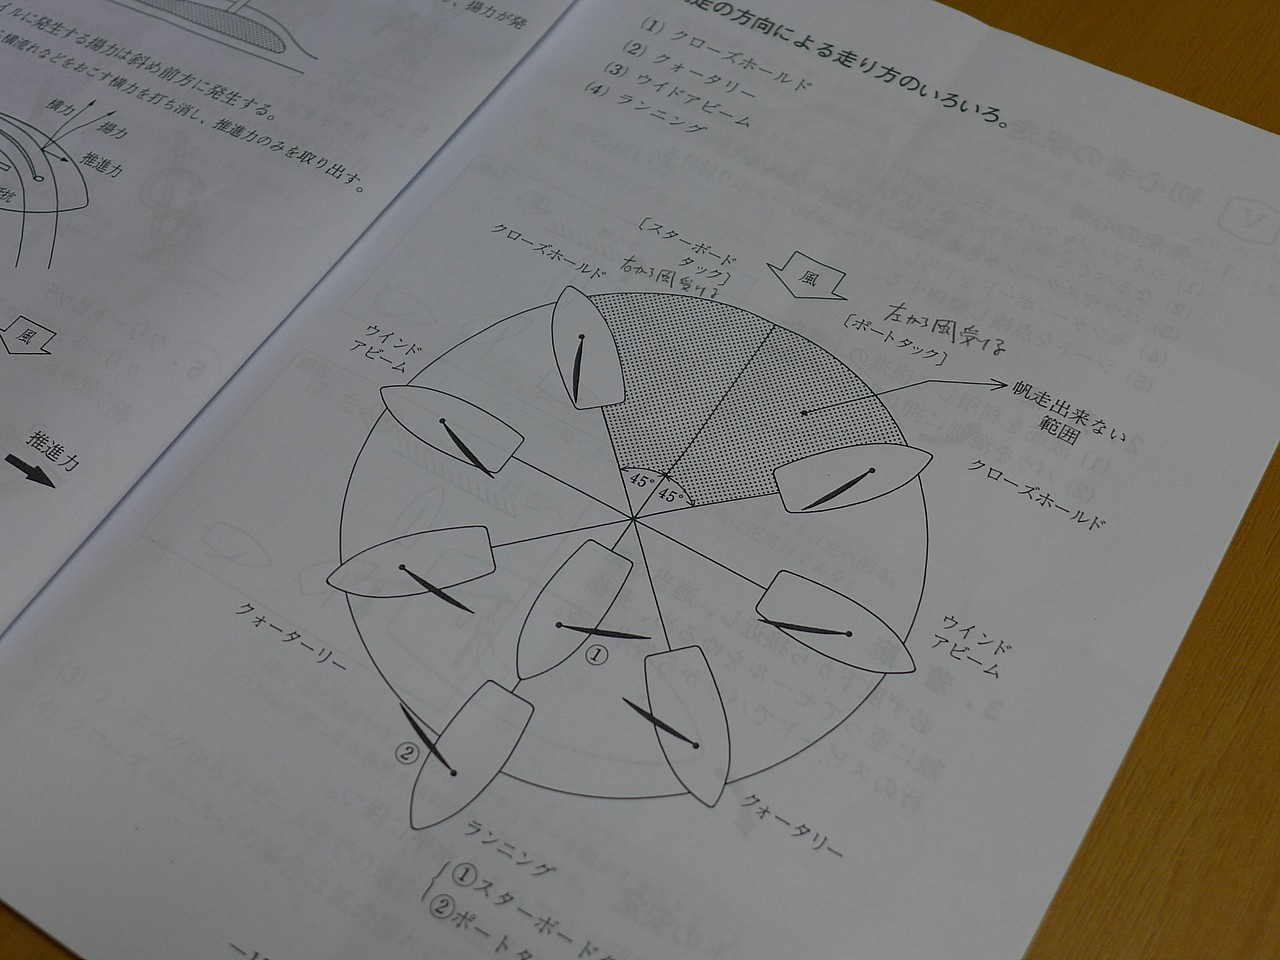 揚力が発
イルに発生する揚力は斜め前方に発生する。
横流れなどをおこす横力を打ち消し、推進力のみを取り出す。
横力
揚力
推進力
抗
風
推進力
走の方向による走り方のいろいろ。
(1) クローズホールド
(2) クォータリー
(3) ウイドアビーム
(4) ランニング
[スターボード
タック]
右から風受ける
風
左から風受ける
[ポートタック]
クローズホールド
ウインド
アビーム
帆走出来ない
範囲
クローズホールド
45° 45°
ウインド
アビーム
クォーターリー
①
②
クォータリー
ランニング
①スターボード
②ポートタ